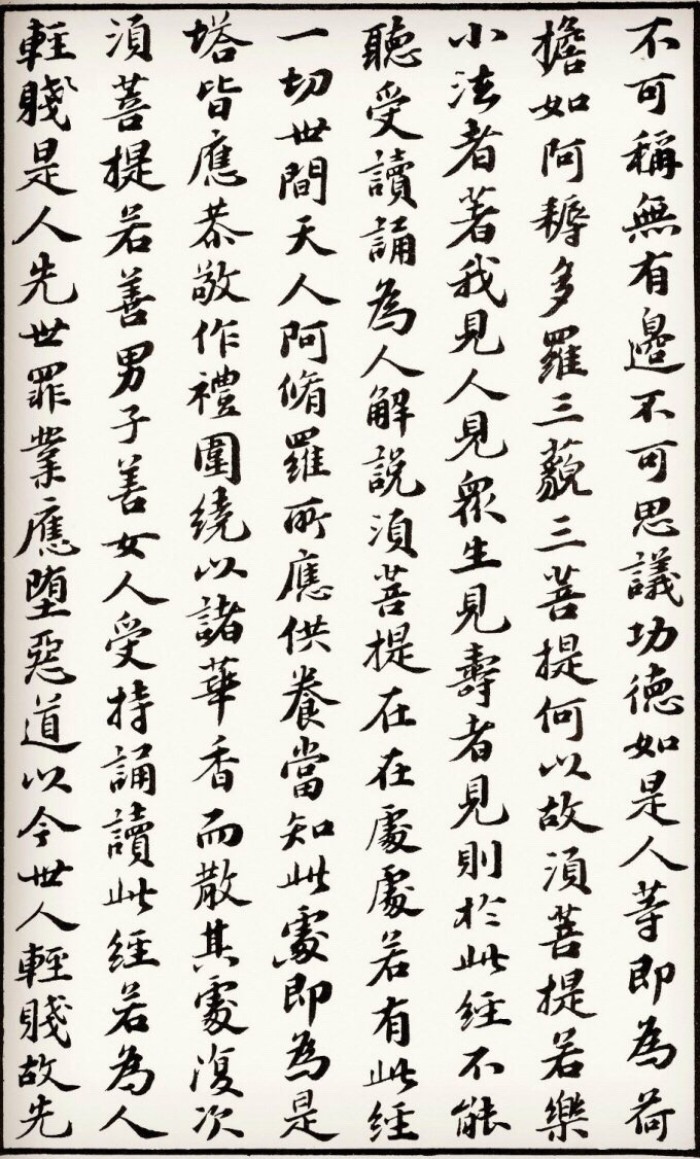 不可稱無有邊不可思議功德如是人等即為荷
擔如阿耨多羅三藐三菩提何以故須菩提若樂
小法者著我見人見眾生見壽者見則於此經不能
聽受讀誦為人解說須菩提在在處處若有此經
一切世間天人阿脩羅所應供養當知此處即為是
塔皆應恭敬作禮圍繞以諸華香而散其處復次
須菩提若善男子善女人受持誦讀此經若為人
輕賤是人先世罪業應墮惡道以今世人輕賤故先